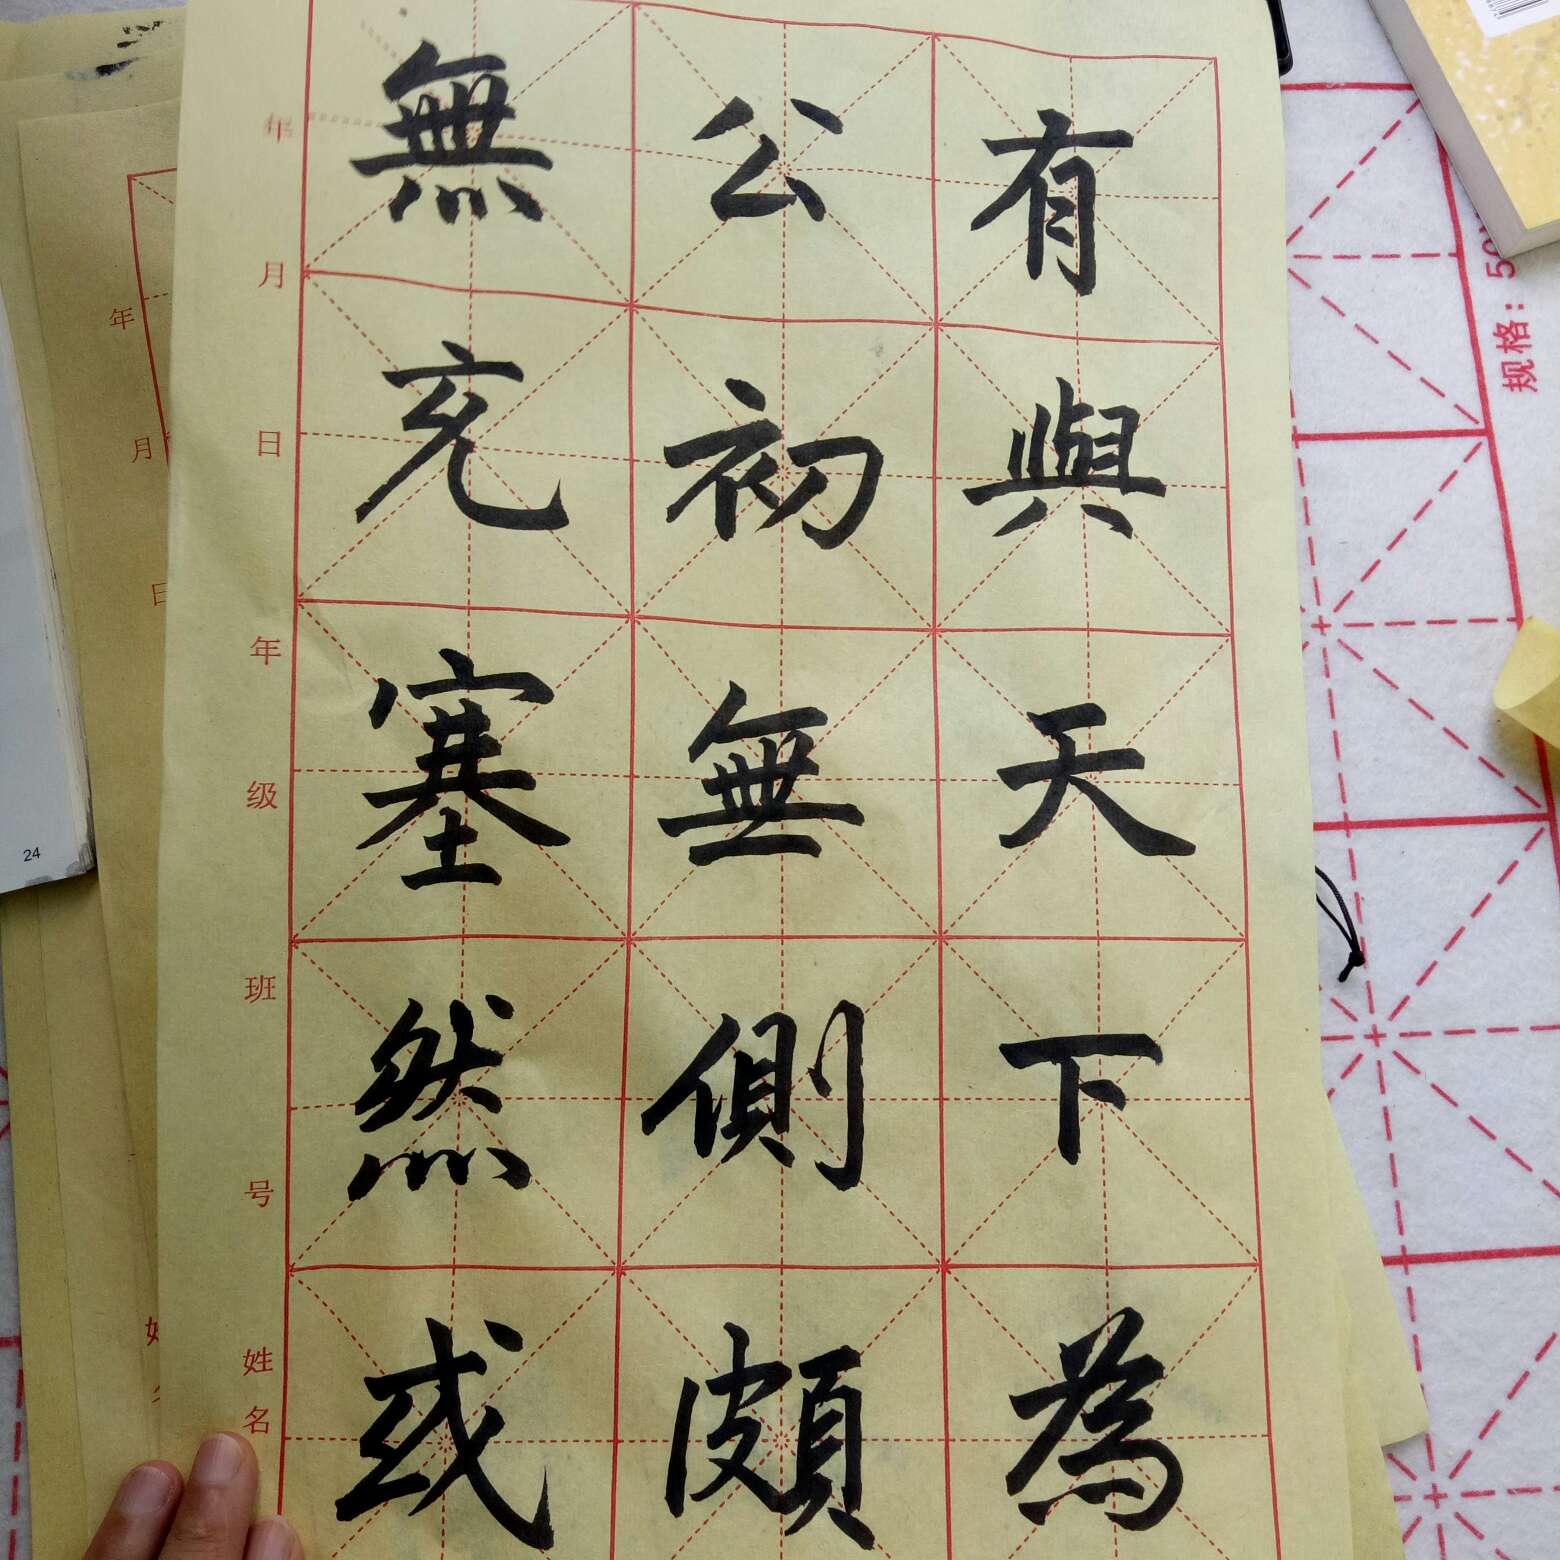 有與天下為
公初無側頗
無充塞然或
年 月 日
年 级 班 号
姓 名
年 月
规格：50
24